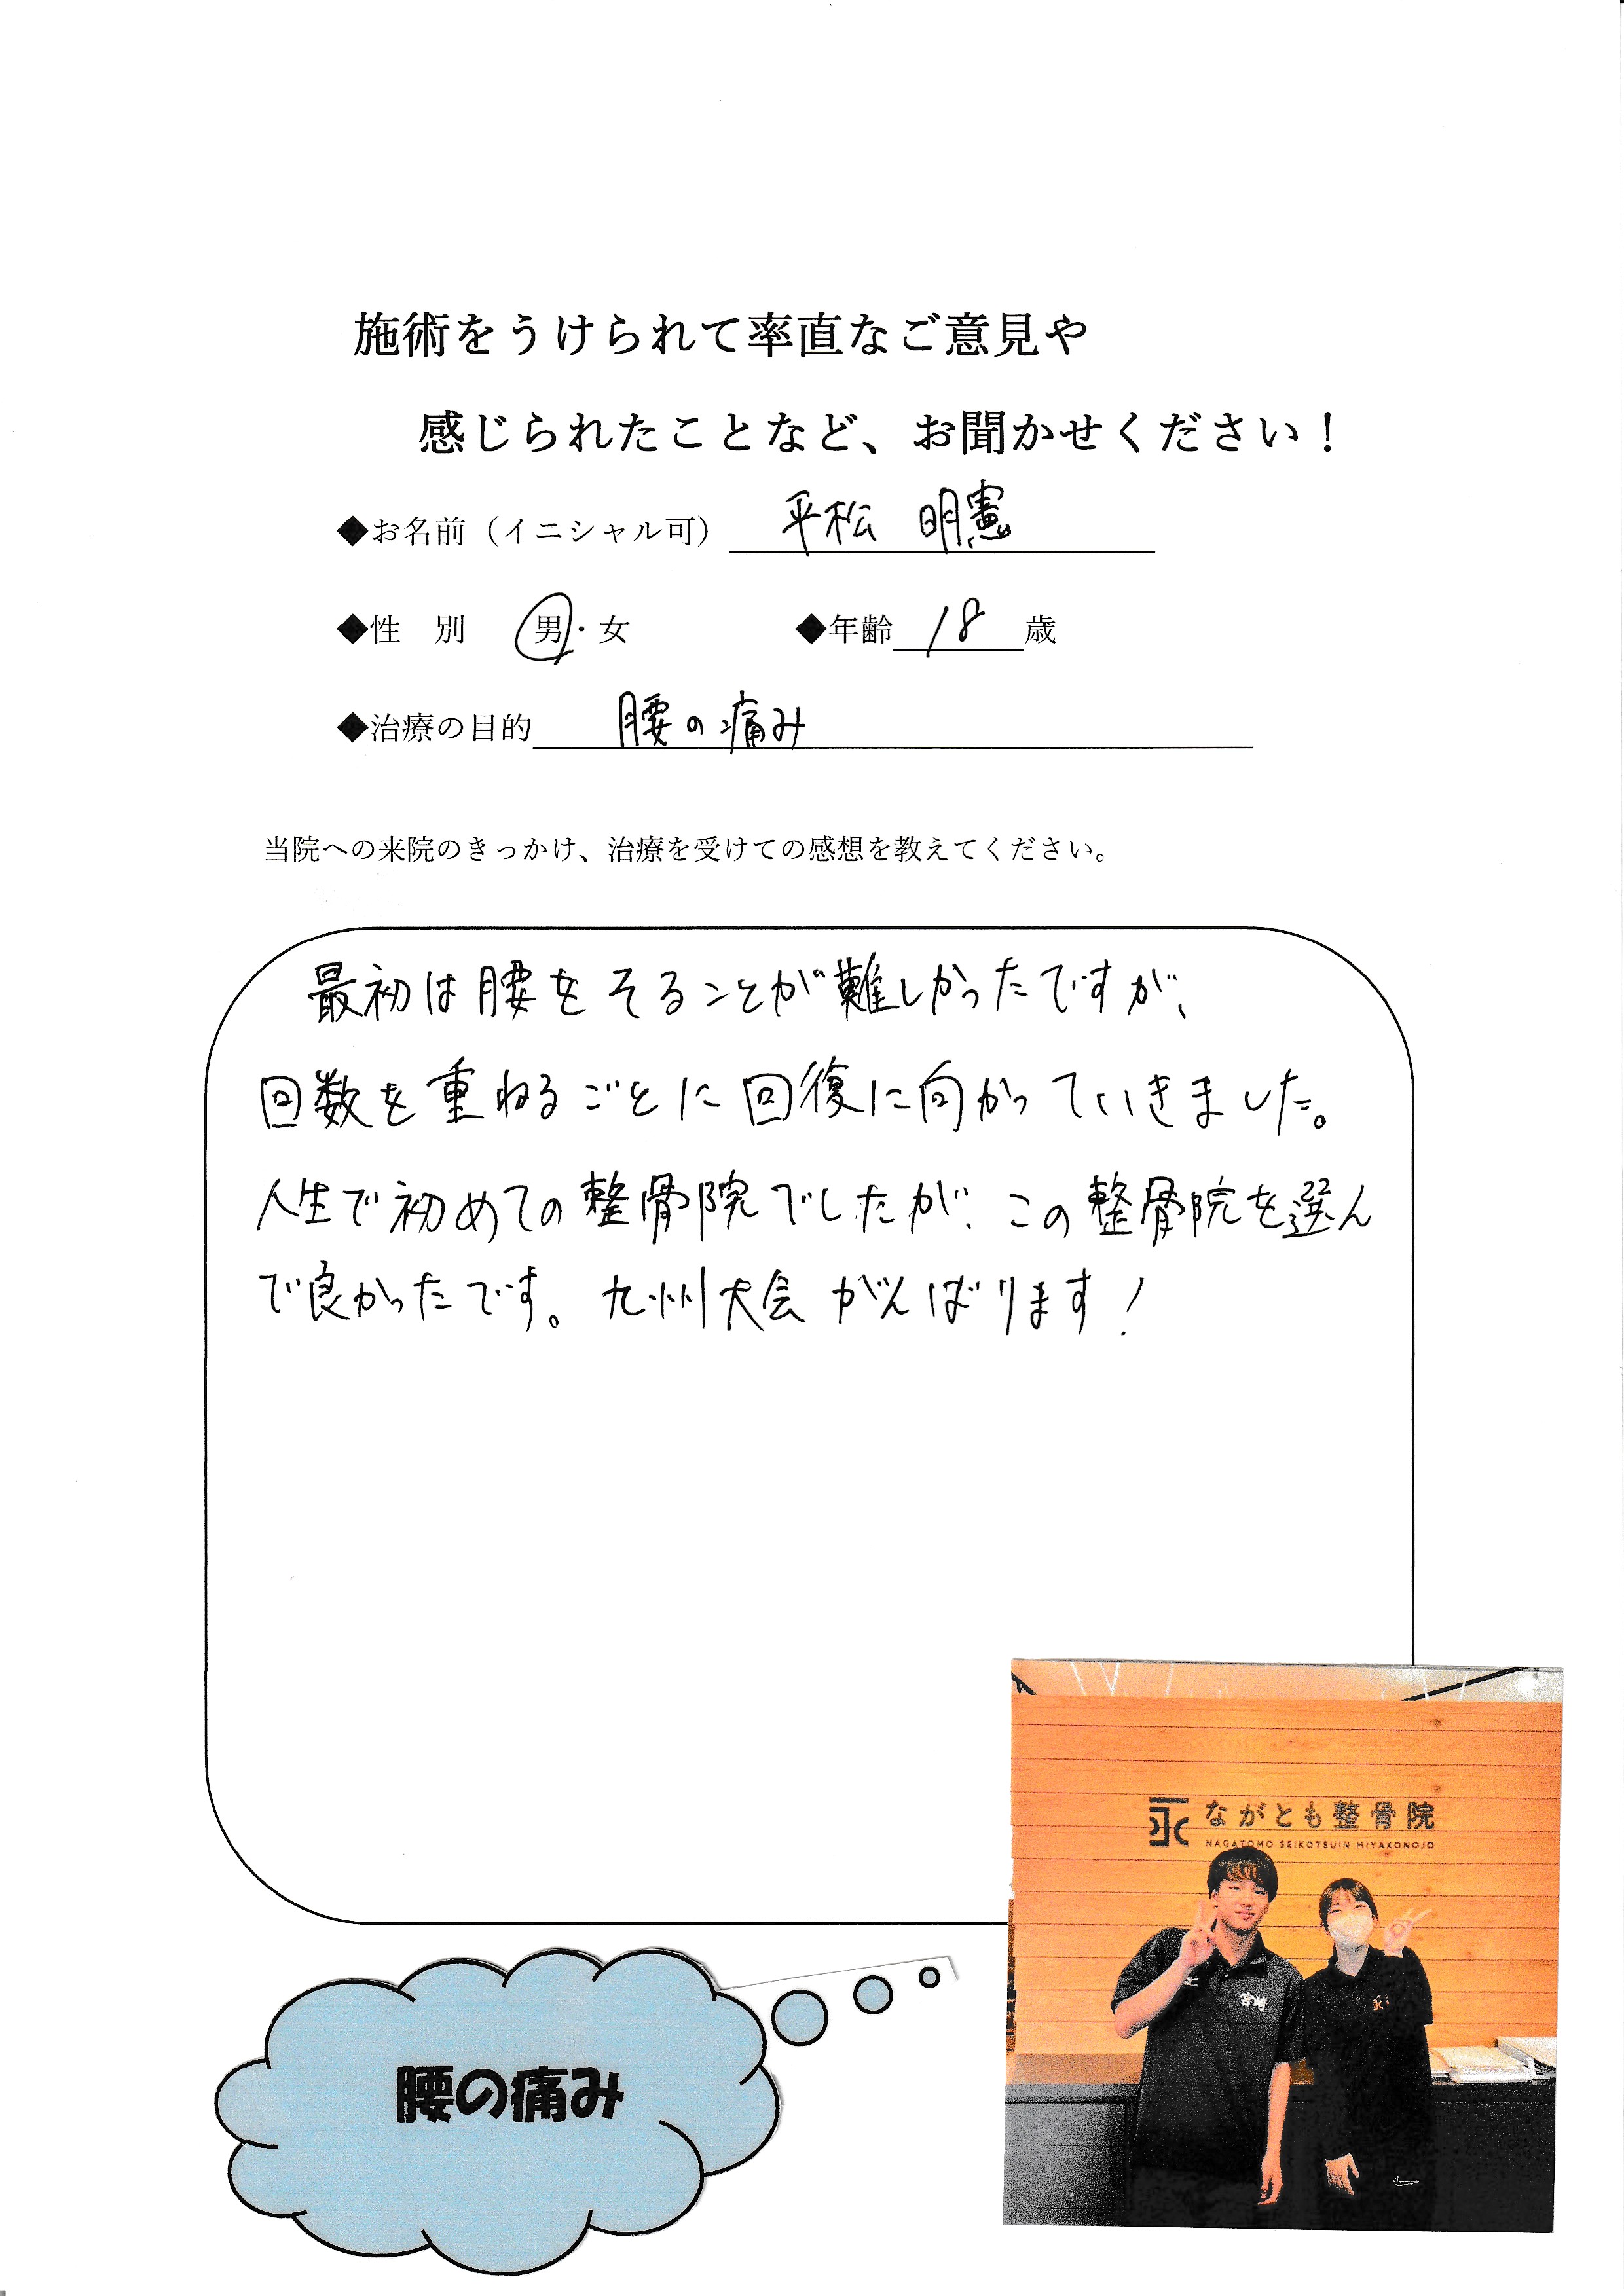 施術をうけられて率直なご意見や
感じられたことなど、お聞かせください！
◆お名前（イニシャル可） 平松 明憲
◆性 別 男・女 ◆年齢 18 歳
◆治療の目的 腰の痛み
当院への来院のきっかけ、治療を受けての感想を教えてください。
最初は腰をそることが難しかったですが、
回数を重ねるごとに回復に向かっていきました。
人生で初めての整骨院でしたが、この整骨院を選ん
で良かったです。九州大会がんばります！
ながとも整骨院
NAGATOMO SEIKOTSUIN MIYAKONOJO
宮崎
腰の痛み